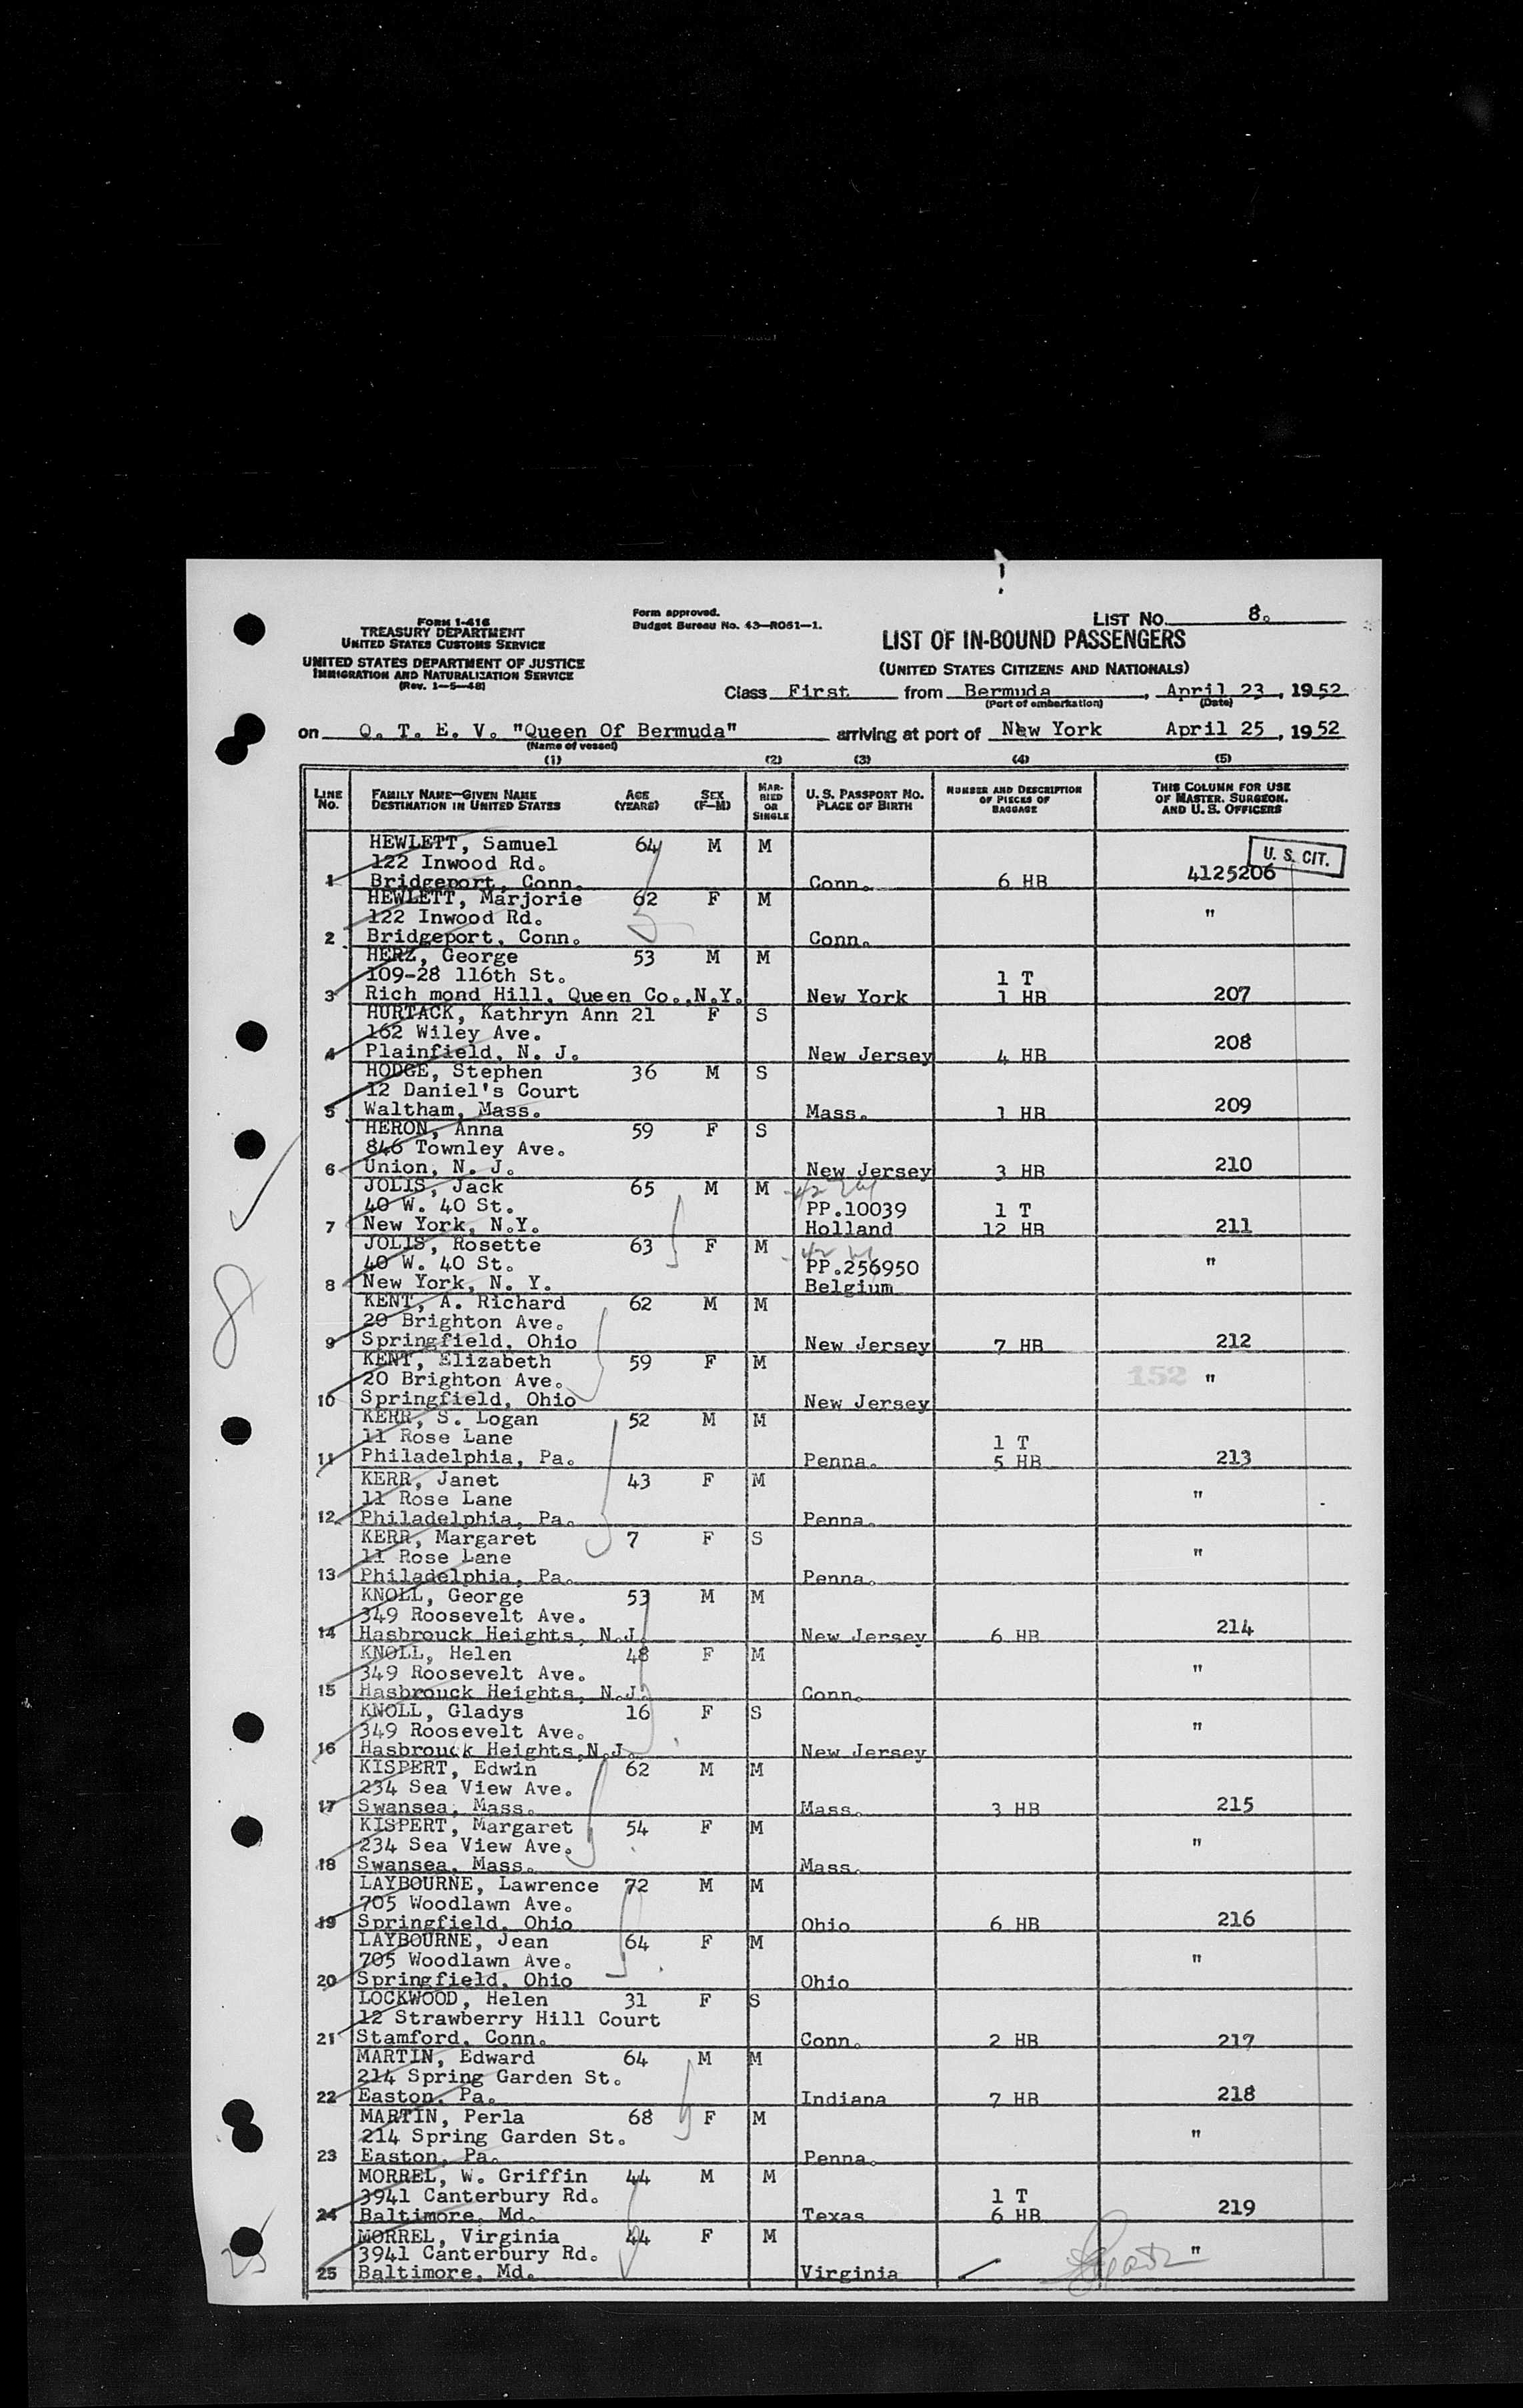 Form I-416
TREASURY DEPARTMENT
UNITED STATES CUSTOMS SERVICE
UNITED STATES DEPARTMENT OF JUSTICE
IMMIGRATION AND NATURALIZATION SERVICE
(Rev. 1-5-48)
Form approved.
Budget Bureau No. 43-R051-1.
LIST NO. 8.
LIST OF IN-BOUND PASSENGERS
(UNITED STATES CITIZENS AND NATIONALS)
Class First from Bermuda, April 23, 1952
(Port of embarkation) (Date)
on Q. T. E. V. "Queen Of Bermuda" arriving at port of New York April 25, 1952
(Name of vessel)
(1) (2) (3) (4) (5)
LINE NO. FAMILY NAME—GIVEN NAME DESTINATION IN UNITED STATES AGE (YEARS) SEX (F-M) MARRIED OR SINGLE U. S. PASSPORT NO. PLACE OF BIRTH NUMBER AND DESCRIPTION OF PIECES OF BAGGAGE THIS COLUMN FOR USE OF MASTER, SURGEON, AND U. S. OFFICERS
HEWLETT, Samuel 64 M M
122 Inwood Rd. U. S. CIT.
1 Bridgeport, Conn. Conn. 6 HB 4125206
HEWLETT, Marjorie 62 F M
122 Inwood Rd. "
2 Bridgeport, Conn. Conn.
HERZ, George 53 M M
109-28 116th St. 1 T
3 Rich mond Hill, Queen Co.,N.Y. New York 1 HB 207
HURTACK, Kathryn Ann 21 F S
162 Wiley Ave.
4 Plainfield, N. J. New Jersey 4 HB 208
HODGE, Stephen 36 M S
12 Daniel's Court
5 Waltham, Mass. Mass. 1 HB 209
HERON, Anna 59 F S
846 Townley Ave.
6 Union, N. J. New Jersey 3 HB 210
JOLIS, Jack 65 M M
40 W. 40 St. PP.10039 1 T
7 New York, N.Y. Holland 12 HB 211
JOLIS, Rosette 63 F M
40 W. 40 St. PP.256950 "
8 New York, N. Y. Belgium
KENT, A. Richard 62 M M
20 Brighton Ave.
9 Springfield, Ohio New Jersey 7 HB 212
KENT, Elizabeth 59 F M
20 Brighton Ave. 152 "
10 Springfield, Ohio New Jersey
KERR, S. Logan 52 M M
11 Rose Lane 1 T
11 Philadelphia, Pa. Penna. 5 HB 213
KERR, Janet 43 F M
11 Rose Lane "
12 Philadelphia, Pa. Penna.
KERR, Margaret 7 F S
11 Rose Lane "
13 Philadelphia, Pa. Penna.
KNOLL, George 53 M M
349 Roosevelt Ave.
14 Hasbrouck Heights, N.J. New Jersey 6 HB 214
KNOLL, Helen 48 F M
349 Roosevelt Ave. "
15 Hasbrouck Heights, N.J. Conn.
KNOLL, Gladys 16 F S
349 Roosevelt Ave. "
16 Hasbrouck Heights,N.J. New Jersey
KISPERT, Edwin 62 M M
234 Sea View Ave.
17 Swansea, Mass. Mass. 3 HB 215
KISPERT, Margaret 54 F M
234 Sea View Ave. "
18 Swansea, Mass. Mass.
LAYBOURNE, Lawrence 72 M M
705 Woodlawn Ave.
19 Springfield, Ohio Ohio 6 HB 216
LAYBOURNE, Jean 64 F M
705 Woodlawn Ave. "
20 Springfield, Ohio Ohio
LOCKWOOD, Helen 31 F S
12 Strawberry Hill Court
21 Stamford, Conn. Conn. 2 HB 217
MARTIN, Edward 64 M M
214 Spring Garden St.
22 Easton, Pa. Indiana 7 HB 218
MARTIN, Perla 68 F M
214 Spring Garden St. "
23 Easton, Pa. Penna.
MORREL, W. Griffin 44 M M
3941 Canterbury Rd. 1 T
24 Baltimore, Md. Texas 6 HB 219
MORREL, Virginia 44 F M
3941 Canterbury Rd. "
25 Baltimore, Md. Virginia
8
25